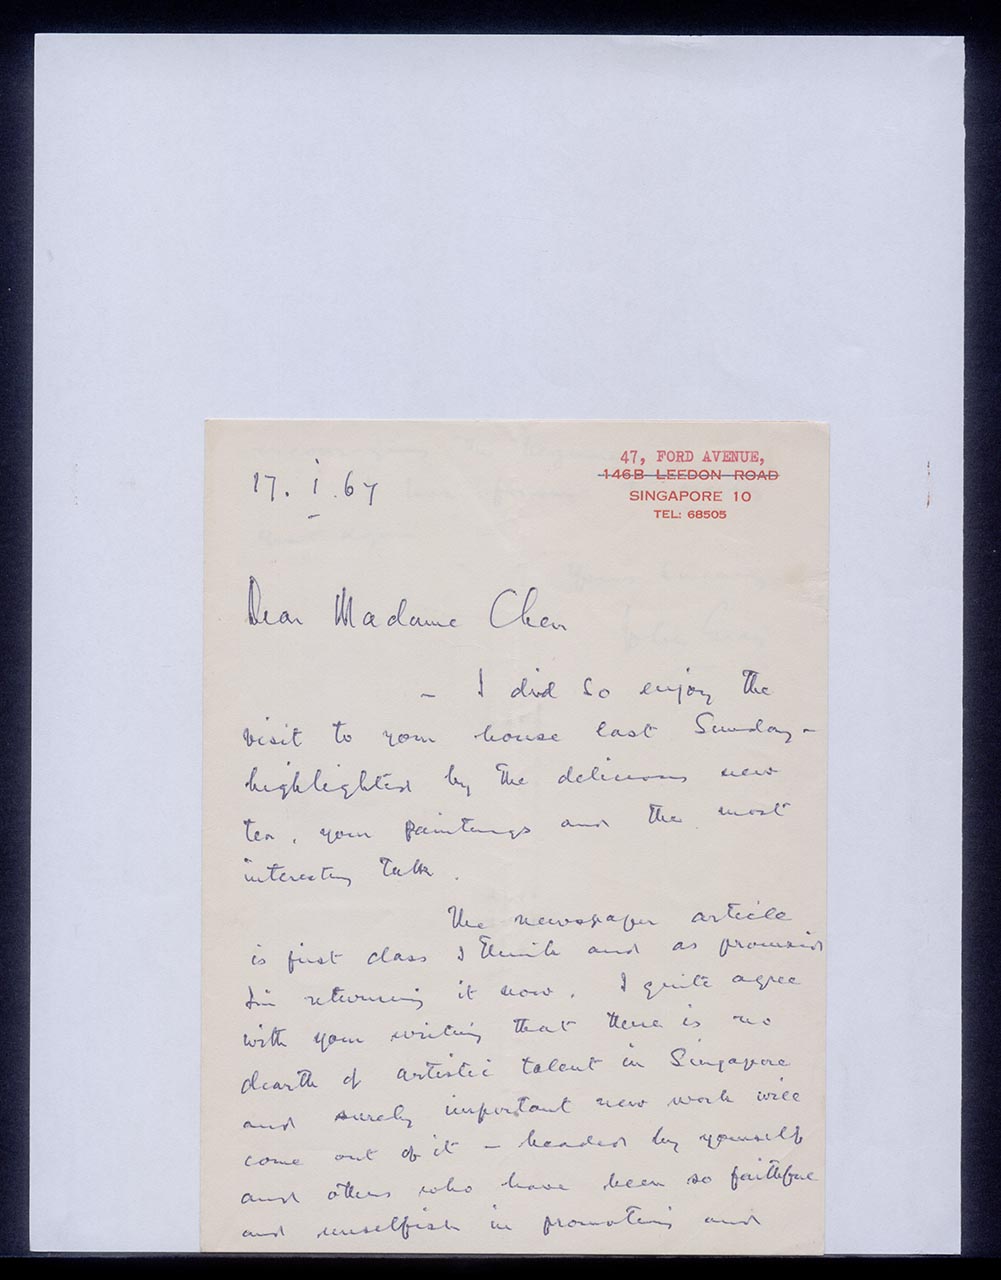 47, FORD AVENUE,
146B LEEDON ROAD
SINGAPORE 10
TEL: 68505
17. i. 67
Dear Madame Chen
- I did so enjoy the
visit to your house last Sunday -
highlighted by the delicious new
tea, your paintings and the most
interesting talk.
The newspaper article
is first class I think and as promised
I'm returning it now. I quite agree
with your writing that there is no
dearth of artistic talent in Singapore
and surely important new work will
come out of it - headed by yourself
and others who have been so faithful
and unselfish in promoting and